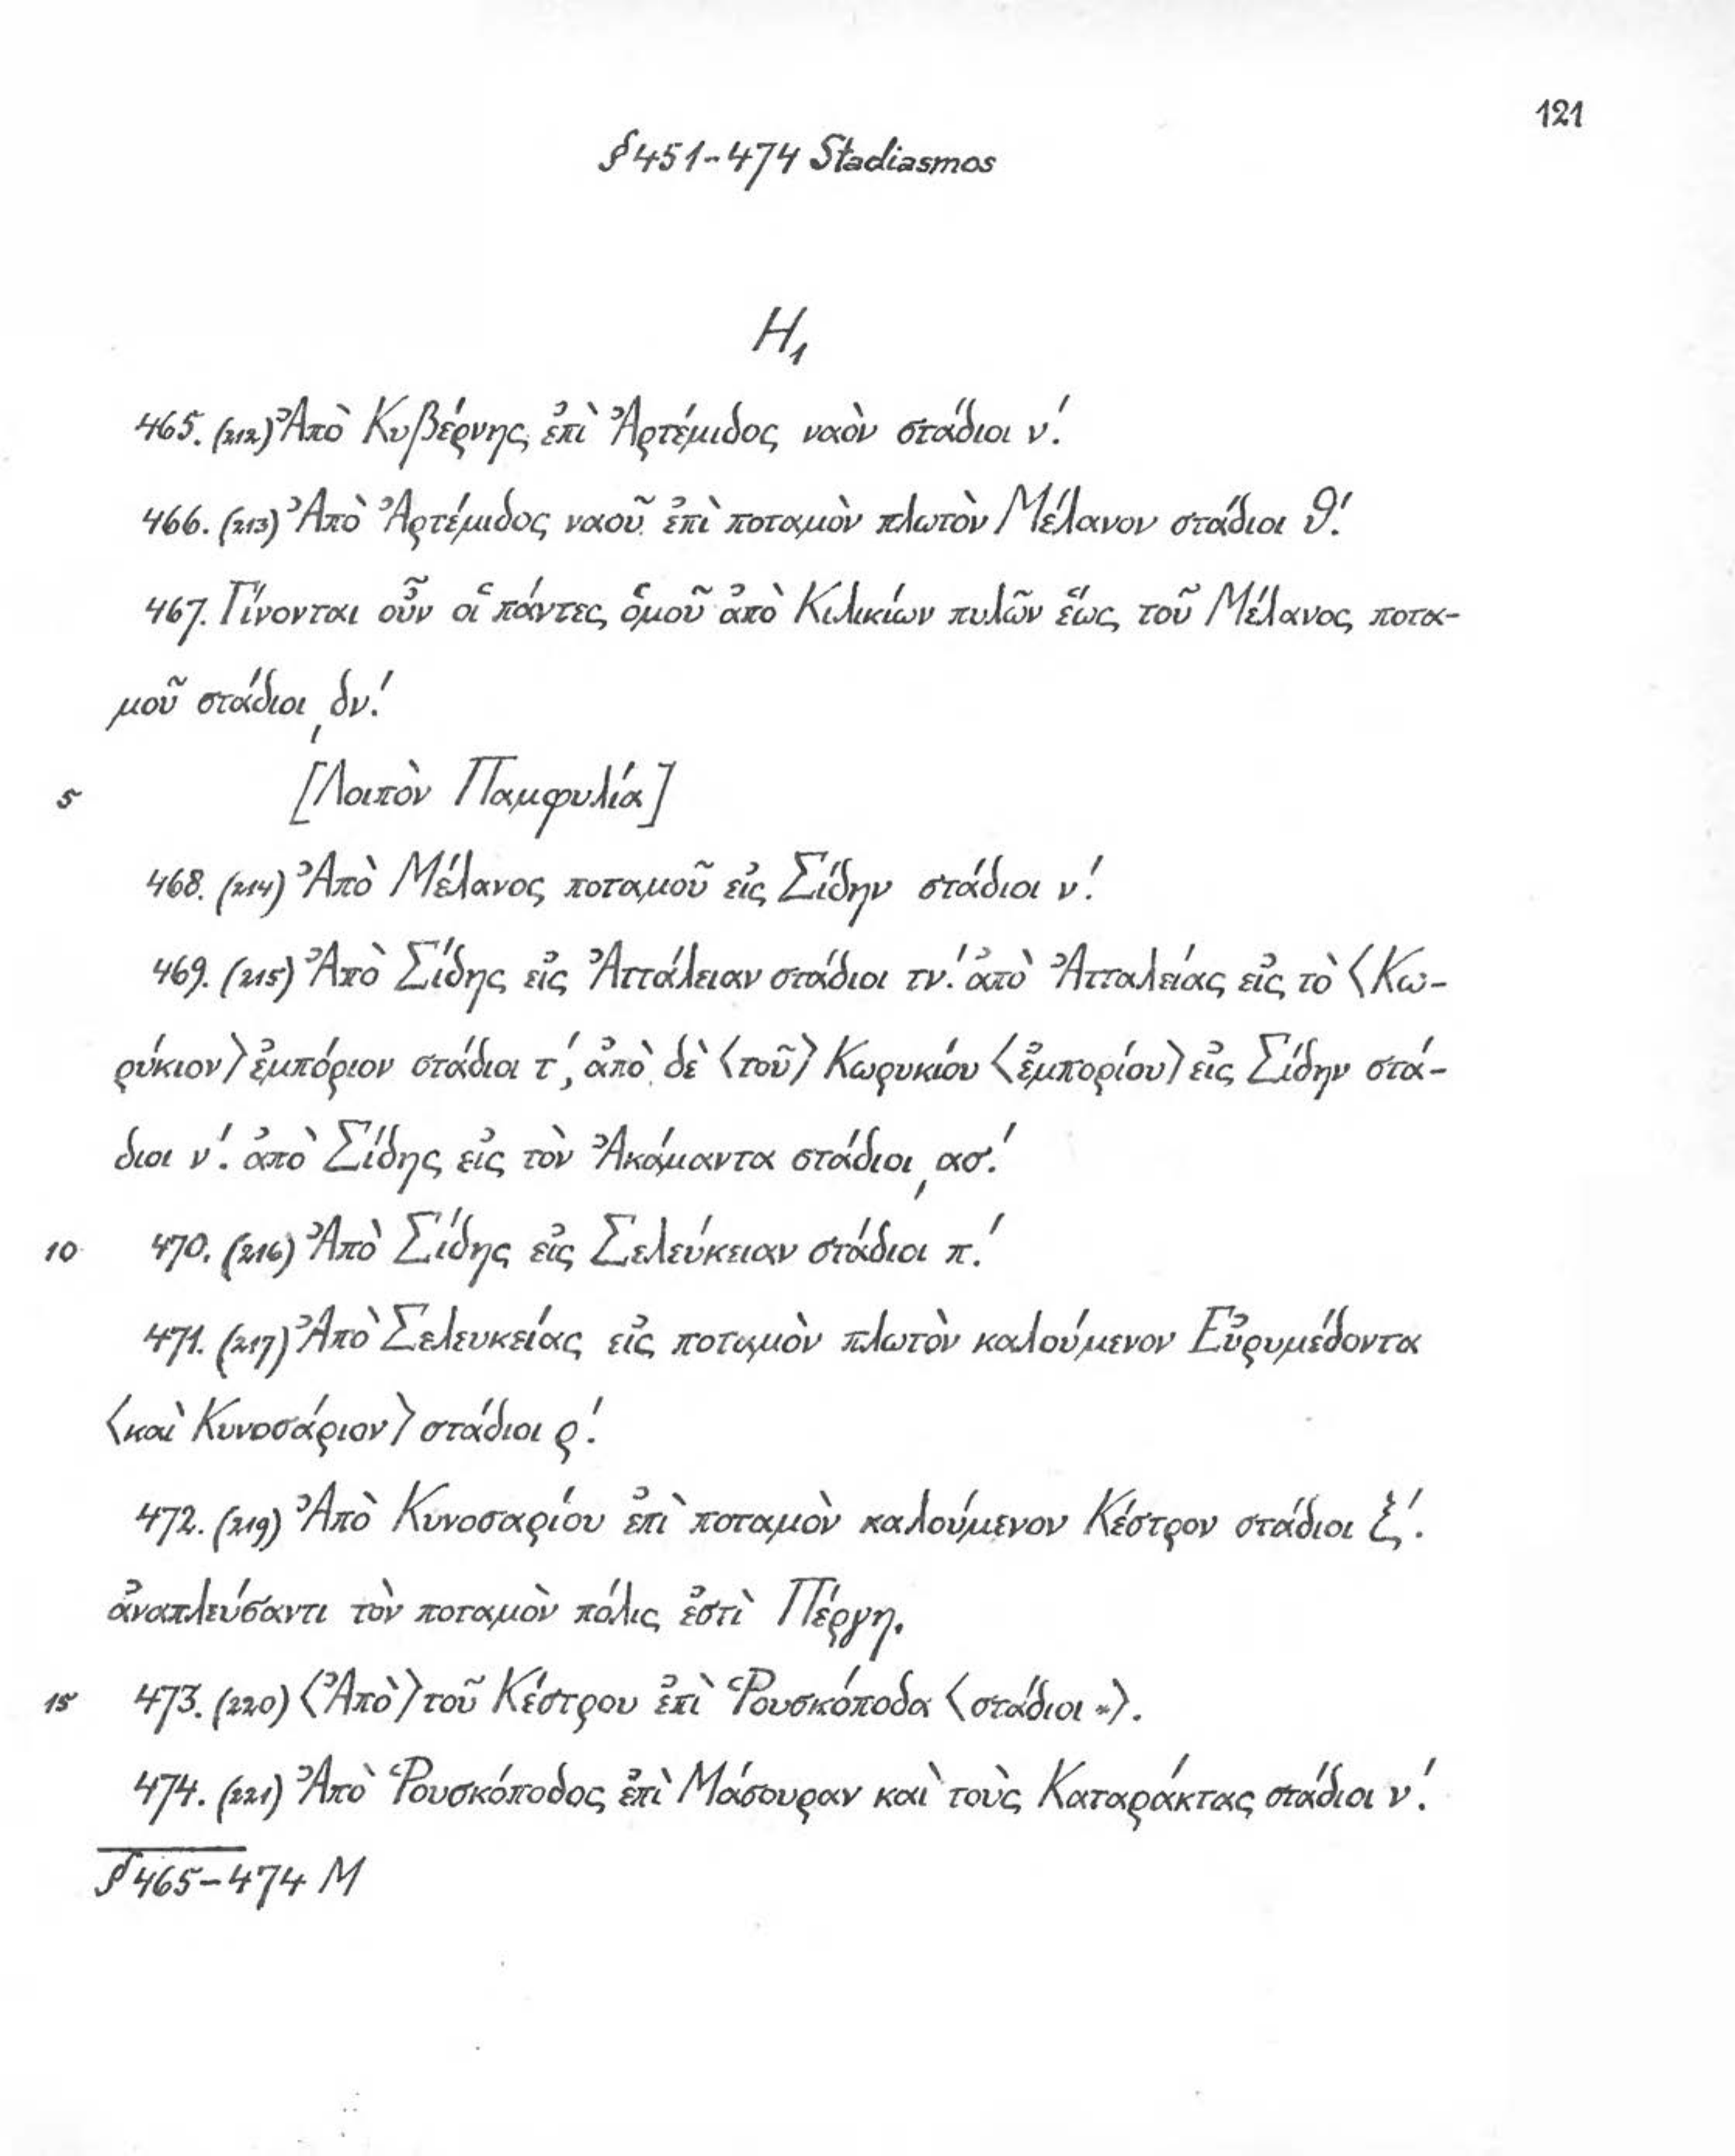 121
§ 451-474 Stadiasmos
H₁
465. (212) Ἀπὸ Κυβέρνης ἐπὶ Ἀρτέμιδος ναὸν στάδιοι ν´.
466. (213) Ἀπὸ Ἀρτέμιδος ναοῦ ἐπὶ ποταμὸν πλωτὸν Μέλανον στάδιοι θ´.
467. Γίνονται οὖν οἱ πάντες ὁμοῦ ἀπὸ Κιλικίων πυλῶν ἕως τοῦ Μέλανος ποτα-
μοῦ στάδιοι ͵δν´.
5 [Λοιπὸν Παμφυλία]
468. (214) Ἀπὸ Μέλανος ποταμοῦ εἰς Σίδην στάδιοι ν´.
469. (215) Ἀπὸ Σίδης εἰς Ἀττάλειαν στάδιοι τν´. ἀπὸ Ἀτταλείας εἰς τὸ ⟨Κω-
ρύκιον⟩ ἐμπόριον στάδιοι τ´, ἀπὸ δὲ ⟨τοῦ⟩ Κωρυκίου ⟨ἐμπορίου⟩ εἰς Σίδην στά-
διοι ν´. ἀπὸ Σίδης εἰς τὸν Ἀκάμαντα στάδιοι ͵ασ´.
10 470. (216) Ἀπὸ Σίδης εἰς Σελεύκειαν στάδιοι π´.
471. (217) Ἀπὸ Σελευκείας εἰς ποταμὸν πλωτὸν καλούμενον Εὐρυμέδοντα
⟨καὶ Κυνοσάριον⟩ στάδιοι ρ´.
472. (219) Ἀπὸ Κυνοσαρίου ἐπὶ ποταμὸν καλούμενον Κέστρον στάδιοι ξ´.
ἀναπλεύσαντι τὸν ποταμὸν πόλις ἐστὶ Πέργη.
15 473. (220) ⟨Ἀπὸ⟩ τοῦ Κέστρου ἐπὶ Ῥουσκόποδα ⟨στάδιοι ..⟩.
474. (221) Ἀπὸ Ῥουσκόποδος ἐπὶ Μάσουραν καὶ τοὺς Καταράκτας στάδιοι ν´.
§ 465-474 M